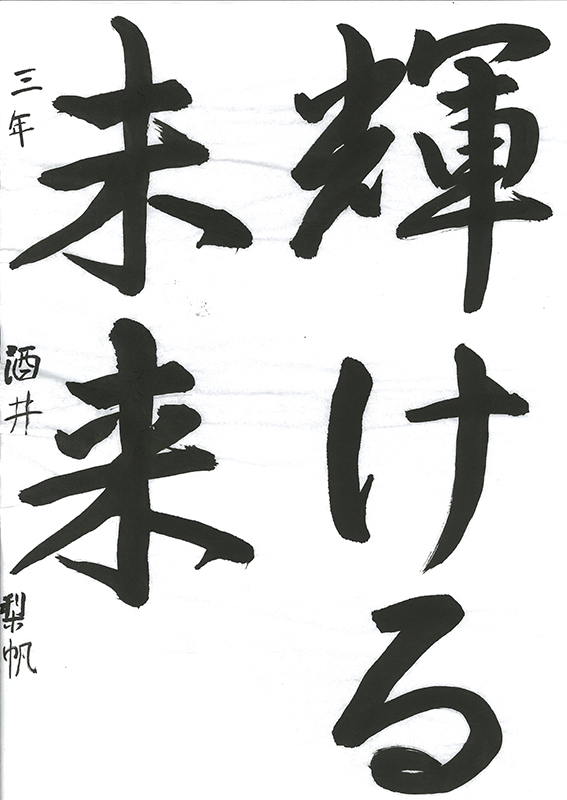 輝ける
未来
三年 酒井 梨帆